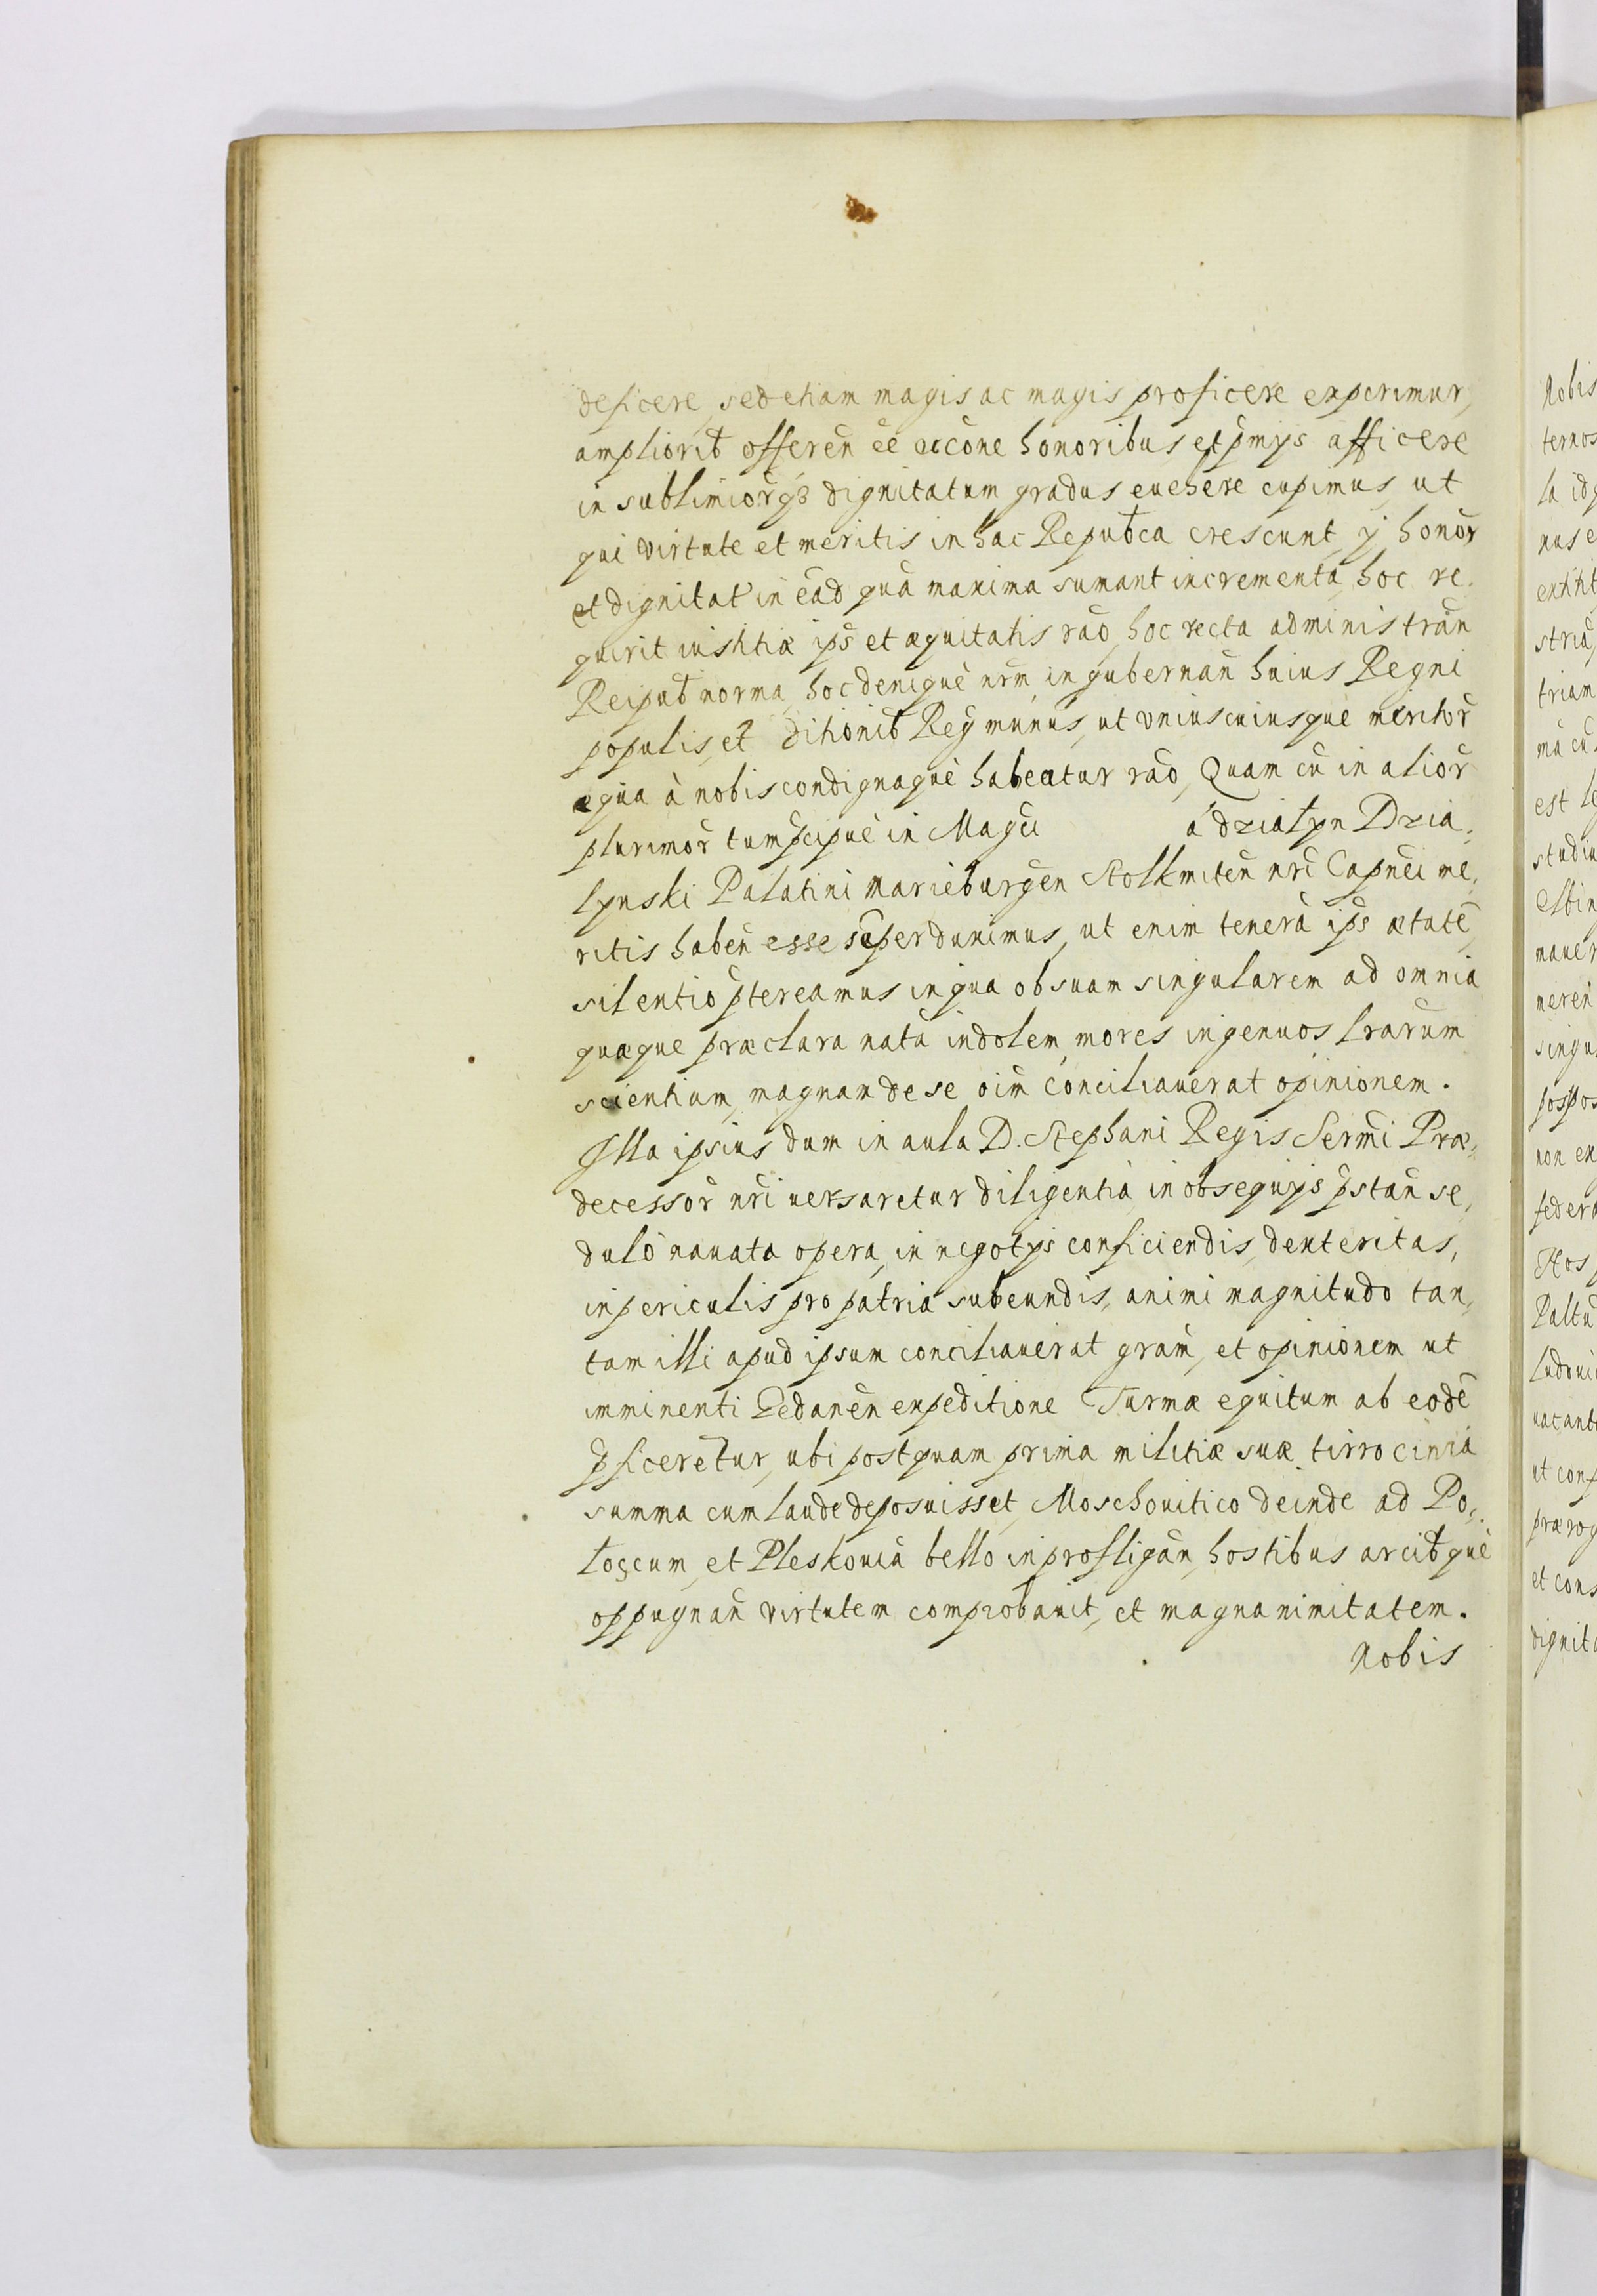 deficere, sed etiam magis ac magis proficere experimur,
ampliorib̄ offeren̄ ēē accōne honoribus et p̄mijs afficere
in sublimiorq̨ dignitatum gradus euehere cupimus, ut
qui virtute et meritis in hac Repub̄ca crescunt, ij honor̄
et dignitat̄ in ead̄ quā maxima sumant incrementa, hoc re-
quirit iustitiæ ips̄ et æquitatis rāo, hoc recta administran̄
Reipub̄ norma, hoc deniquè nr̄m in gubernan̄ huius Regni
populis, et ditionib̄ Reg̃ munus, ut vniuscuiusque meritor̄
æqua à nobis condignaquè habeatur rāo, Quam cū in alior̄
plurimor̄ tum p̄cipuè in Mag̃ci á dziatyn Dzia-
lynski Palatini Marieburgen̄ Stolkmiten̄ nr̄i Capn̄ei me-
ritis haben̄ esse semper duximus, ut enim tenerā ips̄ ætatē,
silentio p̄tereamus in qua ob suam singularem ad omnia
quæque præclara natā indolem, mores ingenuos lr̄arum
scientiam, magnam de se oīm conciliauerat opinionem.
Illa ipsius dum in aula D. Stephani Regis Serm̄i Præ-
decessor̄ nr̄i uersaretur diligentia, in obsequijs p̄stan̄ se-
dulò nauata opera, in negotijs conficiendis, dexteritas,
in periculis pro patria subeundis, animi magnitudo tan-
tam illi apud ipsum conciliauerat gr̄am, et opinionem ut
imminenti Gedanen̄ expeditione Turmæ equitum ab eodē
p̄ficeretur, ubi postquam prima militiæ suæ tirrocinia
summa cum laude deposuisset, Moschouitico deinde ad Po-
loçcum, et Pleskouiā bello in profligan̄, hostibus arcib̄què
oppugnan̄ virtutem comprobauit, et magnanimitatem.
Nobis